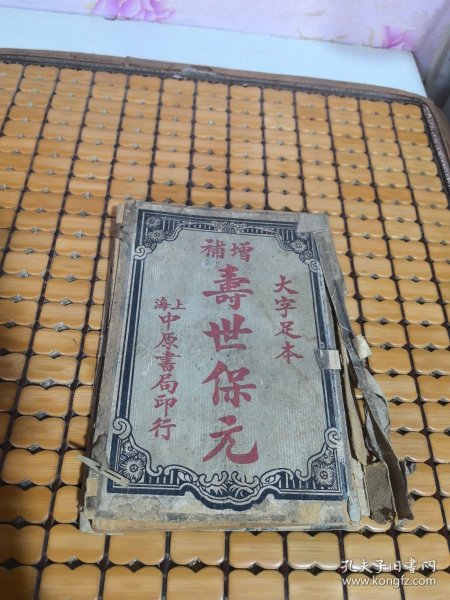 大字足本
增補
壽世保元
上海
中原書局印行
孔夫子旧书网
www.kongfz.com